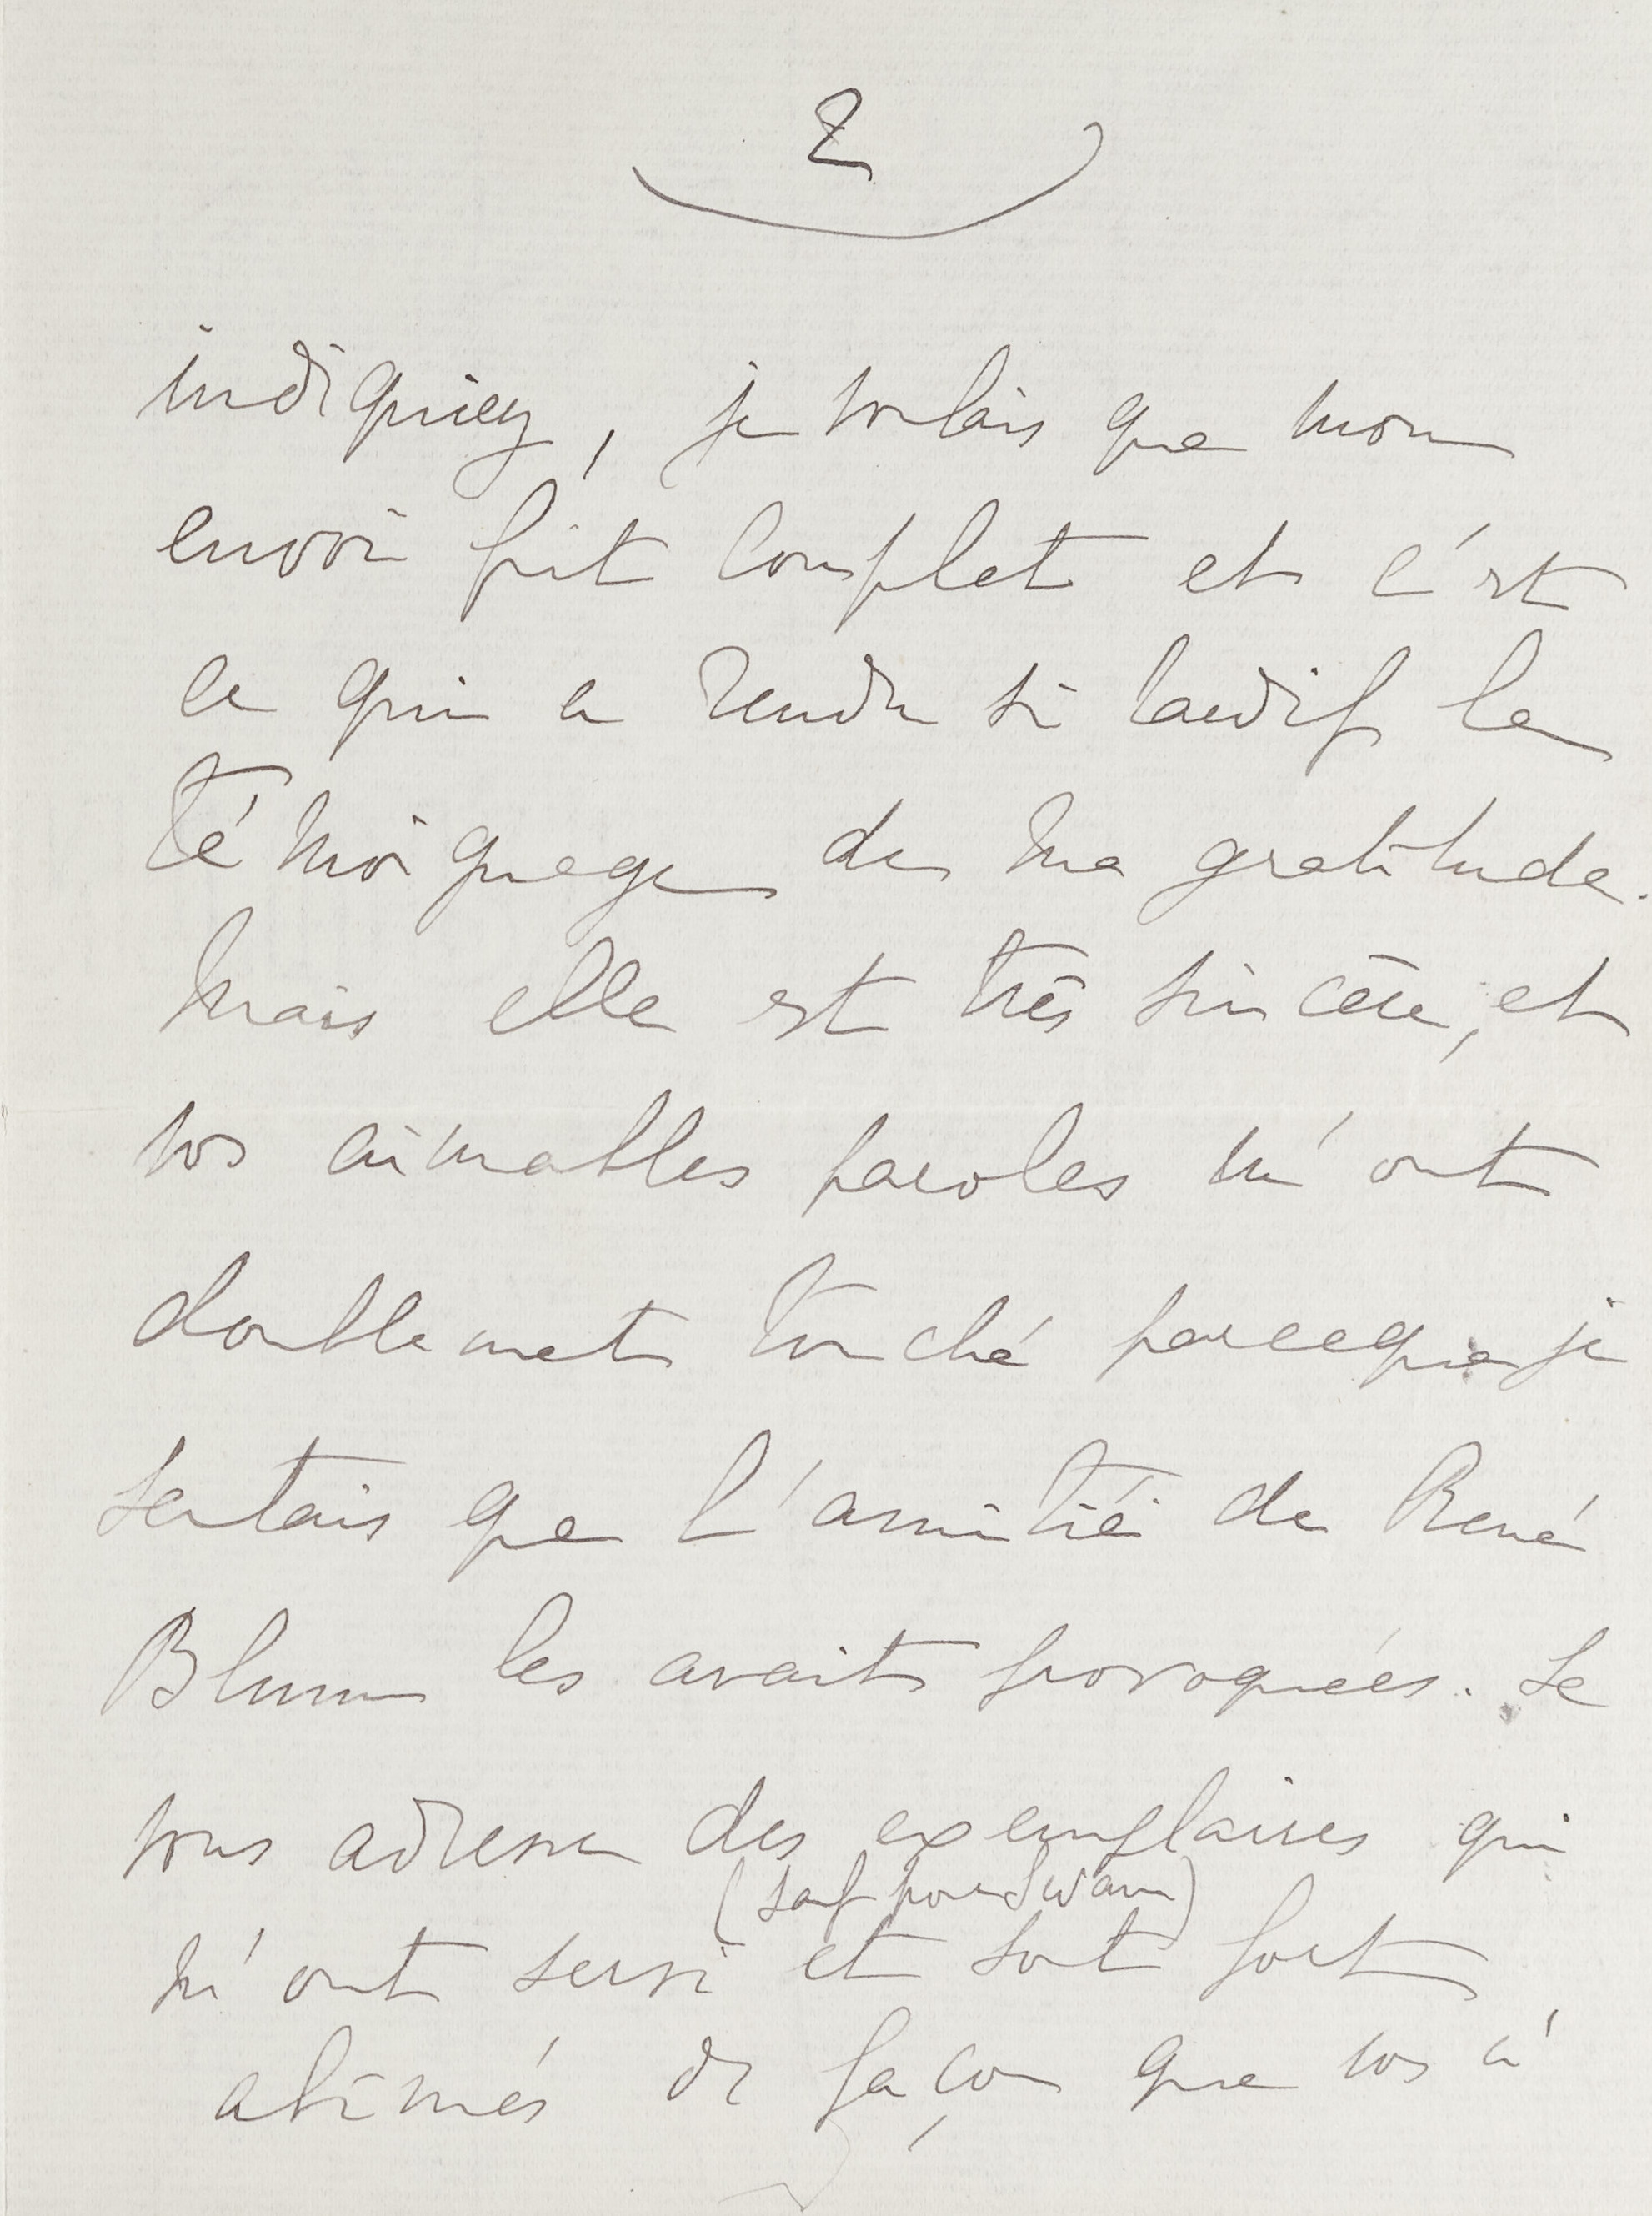 2
indiquiez, je voulais que mon
envoi fût complet et c'est
ce qui a rendu si tardif le
témoignage de ma gratitude.
Mais elle est très sincère, et
vos aimables paroles m'ont
doublement touché parceque je
sentais que l'amitié de René
Blum les avait provoquées. Je
vous adresse des exemplaires qui
(sauf pour Swann)
m'ont servi et sont fort
abîmés de façon que vos